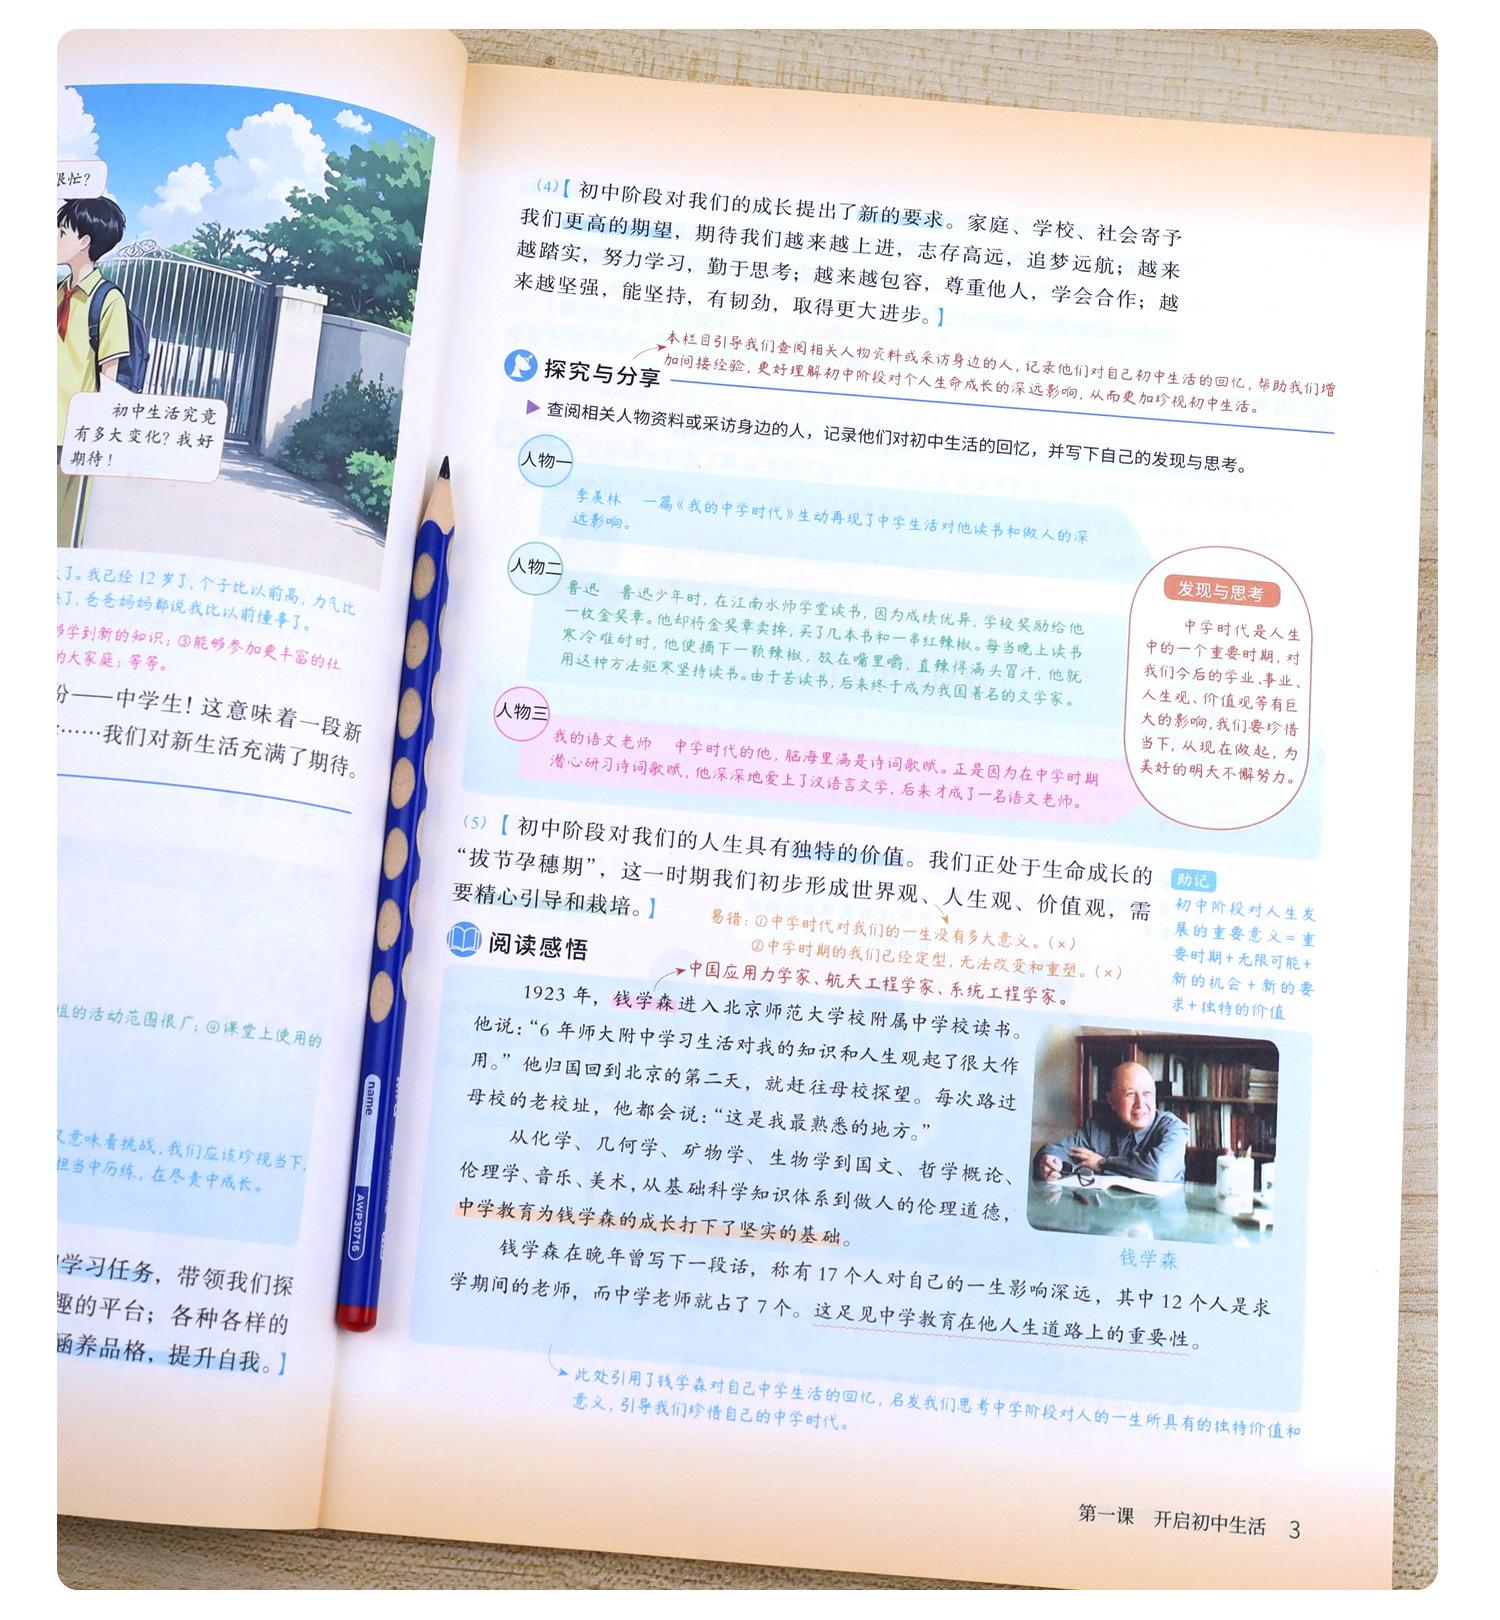 很忙？
初中生活究竟
有多大变化？我好
期待！
了。我已经12岁了，个子比以前高，力气比
了，爸爸妈妈都说我比以前懂事了。
学到新的知识；③能够参加更丰富的社
的大家庭；等等。
份——中学生！这意味着一段新
……我们对新生活充满了期待。
组的活动范围很广；④课堂上使用的
又意味着挑战，我们应该珍视当下，
担当中历练，在尽责中成长。
学习任务，带领我们探
趣的平台；各种各样的
涵养品格，提升自我。】
name
AWP30716
（4）【初中阶段对我们的成长提出了新的要求。家庭、学校、社会寄予
我们更高的期望，期待我们越来越上进，志存高远，追梦远航；越来
越踏实，努力学习，勤于思考；越来越包容，尊重他人，学会合作；越
来越坚强，能坚持，有韧劲，取得更大进步。】
本栏目引导我们查阅相关人物资料或采访身边的人，记录他们对自己初中生活的回忆，帮助我们增
加间接经验，更好理解初中阶段对个人生命成长的深远影响，从而更加珍视初中生活。
探究与分享
▶查阅相关人物资料或采访身边的人，记录他们对初中生活的回忆，并写下自己的发现与思考。
人物一
季羡林 一篇《我的中学时代》生动再现了中学生活对他读书和做人的深
远影响。
人物二
鲁迅 鲁迅少年时，在江南水师学堂读书，因为成绩优异，学校奖励给他
一枚金奖章。他却将金奖章卖掉，买了几本书和一串红辣椒。每当晚上读书
寒冷难耐时，他便摘下一颗辣椒，放在嘴里嚼，直辣得满头冒汗，他就
用这种方法驱寒坚持读书。由于苦读书，后来终于成为我国著名的文学家。
人物三
我的语文老师 中学时代的他，脑海里满是诗词歌赋。正是因为在中学时期
潜心研习诗词歌赋，他深深地爱上了汉语言文学，后来才成了一名语文老师。
发现与思考
中学时代是人生
中的一个重要时期，对
我们今后的学业、事业、
人生观、价值观等有巨
大的影响，我们要珍惜
当下，从现在做起，为
美好的明天不懈努力。
（5）【初中阶段对我们的人生具有独特的价值。我们正处于生命成长的
“拔节孕穗期”，这一时期我们初步形成世界观、人生观、价值观，需
要精心引导和栽培。】
易错：①中学时代对我们的一生没有多大意义。（×）
②中学时期的我们已经定型，无法改变和重塑。（×）
助记
初中阶段对人生发
展的重要意义＝重
要时期＋无限可能＋
新的机会＋新的要
求＋独特的价值
阅读感悟
中国应用力学家、航天工程学家、系统工程学家。
1923年，钱学森进入北京师范大学校附属中学校读书。
他说：“6年师大附中学习生活对我的知识和人生观起了很大作
用。”他归国回到北京的第二天，就赶往母校探望。每次路过
母校的老校址，他都会说：“这是我最熟悉的地方。”
从化学、几何学、矿物学、生物学到国文、哲学概论、
伦理学、音乐、美术，从基础科学知识体系到做人的伦理道德，
中学教育为钱学森的成长打下了坚实的基础。
钱学森
钱学森在晚年曾写下一段话，称有17个人对自己的一生影响深远，其中12个人是求
学期间的老师，而中学老师就占了7个。这足见中学教育在他人生道路上的重要性。
此处引用了钱学森对自己中学生活的回忆，启发我们思考中学阶段对人的一生所具有的独特价值和
意义，引导我们珍惜自己的中学时代。
第一课 开启初中生活 3